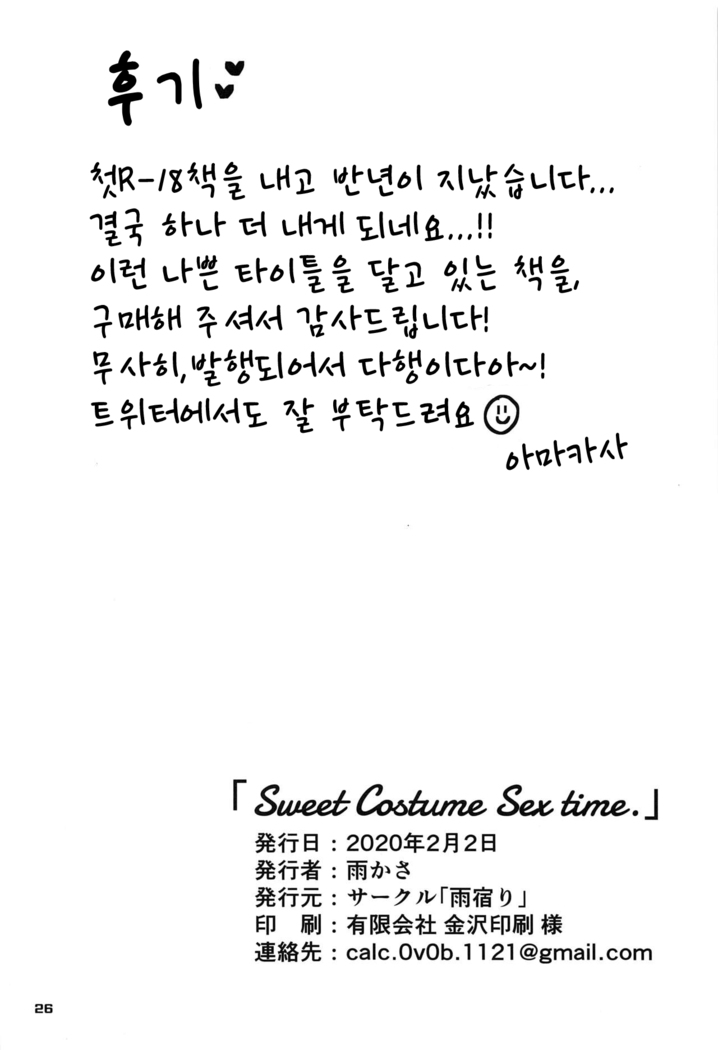 후기
첫R-18책을 내고 반년이 지났습니다...
결국 하나 더 내게 되네요...!!
이런 나쁜 타이틀을 달고 있는 책을,
구매해 주셔서 감사드립니다!
무사히,발행되어서 다행이다아~!
트위터에서도 잘 부탁드려요
아마카사
「Sweet Costume Sex time.」
発行日：2020年2月2日
発行者：雨かさ
発行元：サークル「雨宿り」
印　刷：有限会社 金沢印刷 様
連絡先：calc.0v0b.1121@gmail.com
26